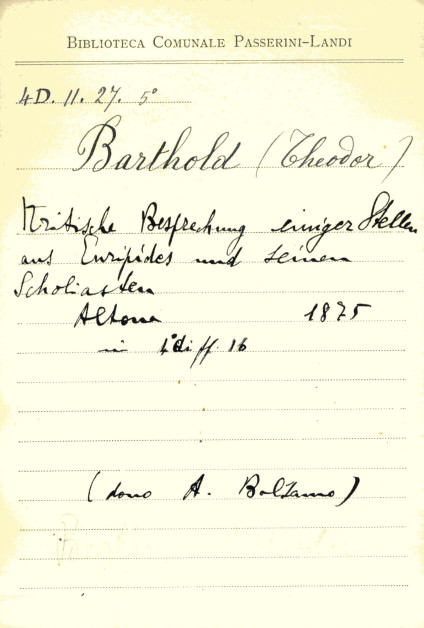 BIBLIOTECA COMUNALE PASSERINI-LANDI
4D. 11. 27. 5°
Barthold (Theodor)
Kritische Besprechung einiger Stellen
aus Euripides und seinen
Scholiasten
Altona 1875
in 4° di ff. 16
(dono A. Bolzano)